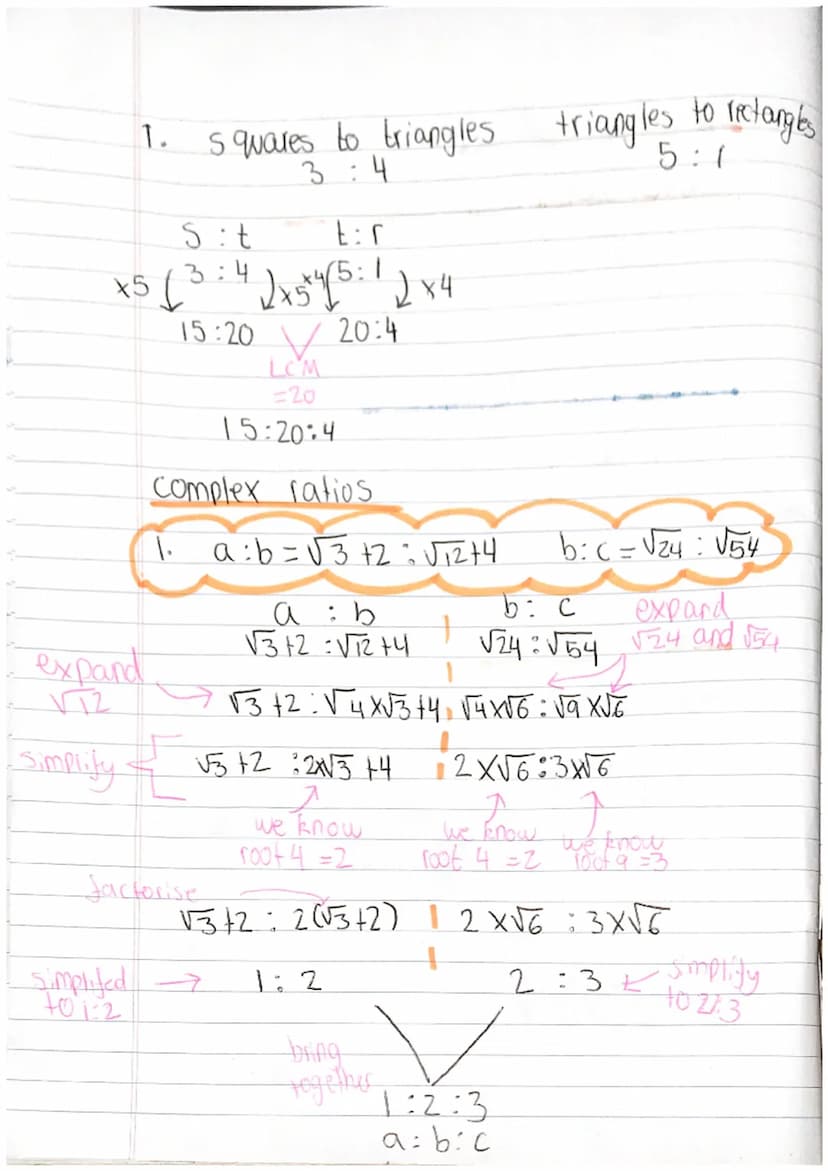 1. squares to triangles triangles to rectangles
3 : 4 5 : 1
S : t t : r
x5 3 : 4 x5 x4 5 : 1 x4
15 : 20 20 : 4
LCM
=20
15 : 20 : 4
Complex ratios
1. a : b = √3 + 2 : √12 + 4 b : c = √24 : √54
a : b b : c expand
√3 + 2 : √12 + 4 √24 : √54 √24 and √54
expand
√12 √3 + 2 : √4 x √3 + 4 √4 x √6 : √9 x √6
simplify √3 + 2 : 2x√3 + 4 2 x √6 : 3x√6
we know we know we know
root 4 = 2 root 4 = 2 root 9 = 3
factorise
√3 + 2 : 2(√3 + 2) 2 x √6 : 3 x √6
simplifed 1 : 2 2 : 3 simplify
to 1:2 to 2:3
bring
together
1 : 2 : 3
a : b : c